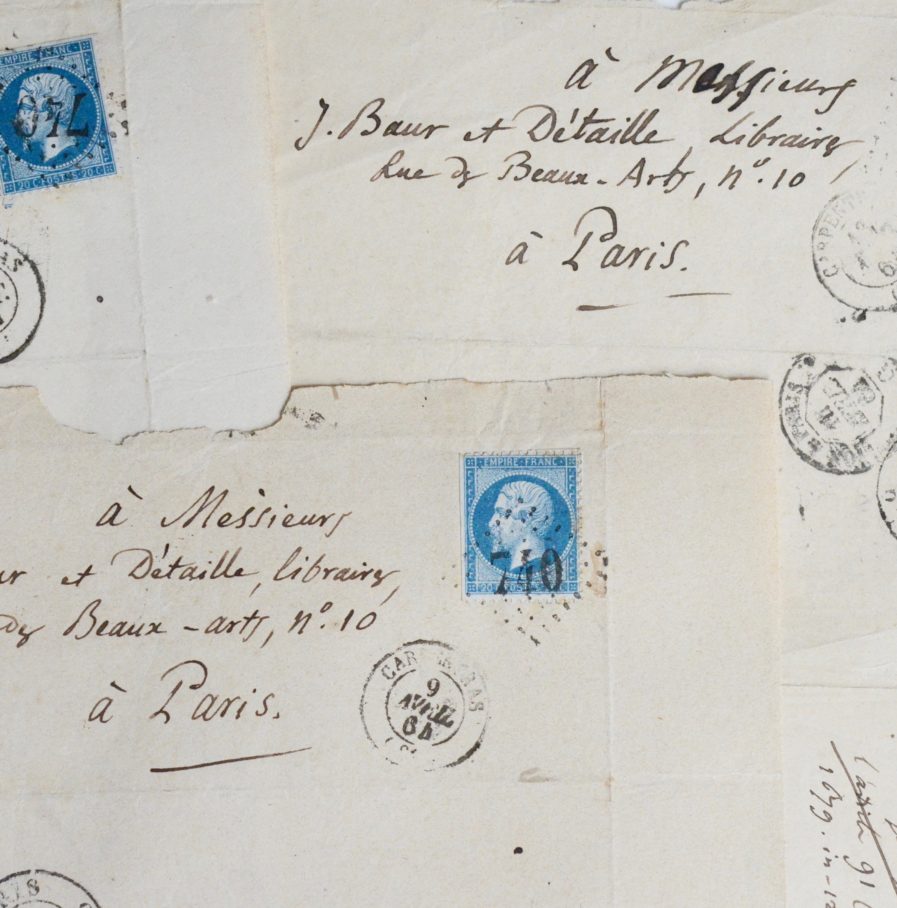 EMPIRE FRANC
740
20 C 20 C
à Messieurs
J. Baur et Détaille, Libraires,
Rue des Beaux-Arts, nº. 10
à Paris.
à Mèsieurs
et Détaille, libraires,
des Beaux-arts, nº. 10
à Paris.
EMPIRE FRANC
740
CAR RAS
9
AVRIL
64
PARIS
1679. in-12